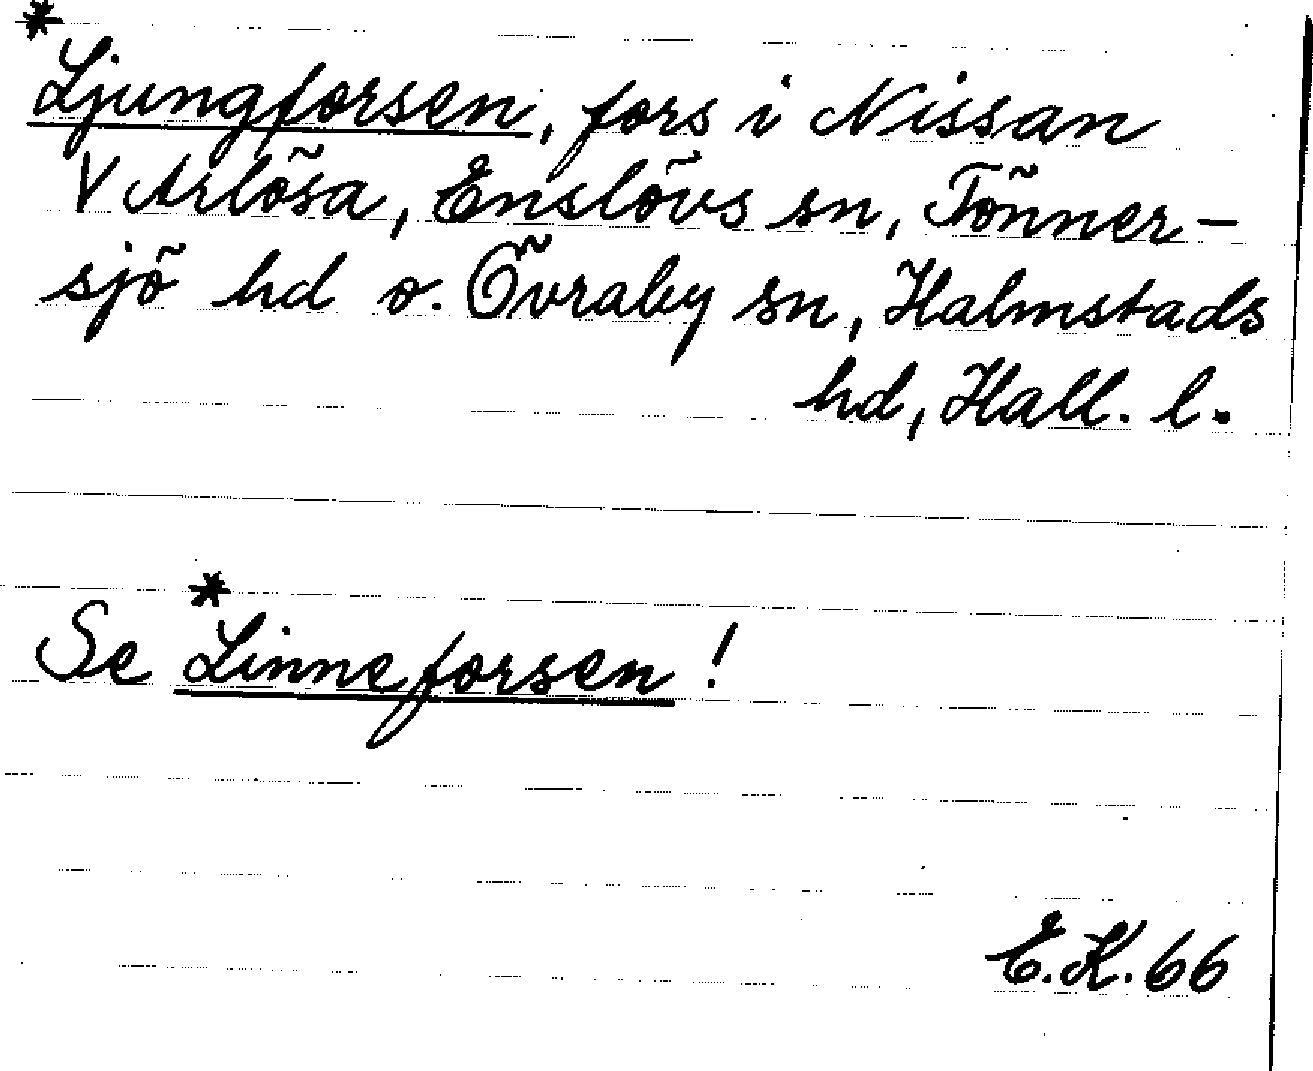 *
Ljungforsen, fors i Nissan
V Arlösa, Enslövs sn, Tönner-
sjö hd o. Övraby sn, Halmstads
hd, Hall. l.
*
Se Linneforsen!
E.K. 66